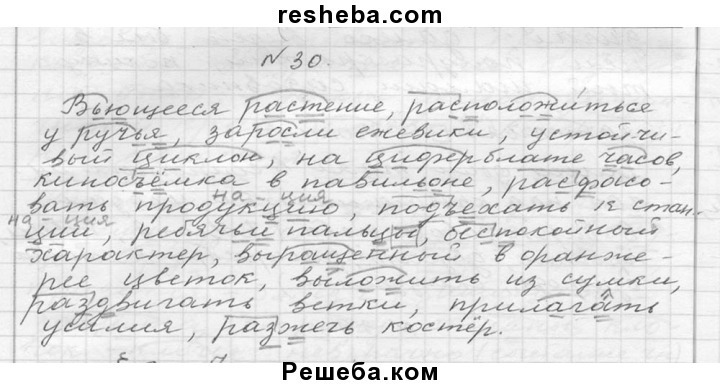 resheba.com
№30.
Вьющееся растение, расположиться
у ручья, заросли ежевики, устойчи-
вый циклон, на циферблате часов,
киносъёмка в павильоне, расфасо-
на ция
вать продукцию, подъехать к стан-
на - ция
ции, ребячьи пальцы, беспокойный
характер, выращенный в оранже-
рее цветок, выложить из сумки,
раздвигать ветки, прилагать
усилия, разжечь костёр.
Решеба.com